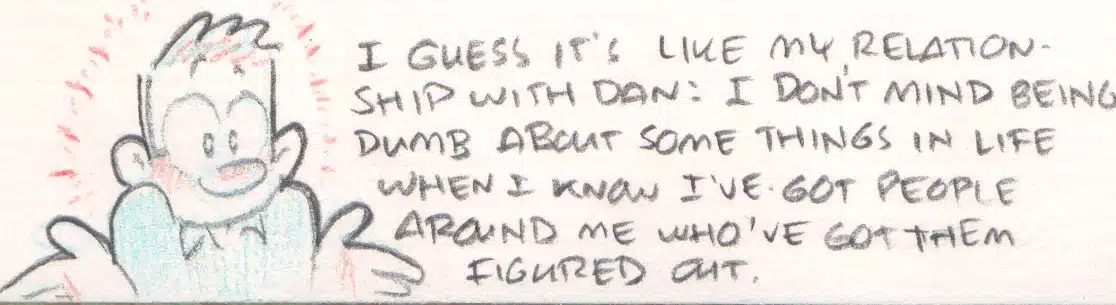 I GUESS IT'S LIKE MY RELATION-
SHIP WITH DAN: I DON'T MIND BEING
DUMB ABOUT SOME THINGS IN LIFE
WHEN I KNOW I'VE GOT PEOPLE
AROUND ME WHO'VE GOT THEM
FIGURED OUT.